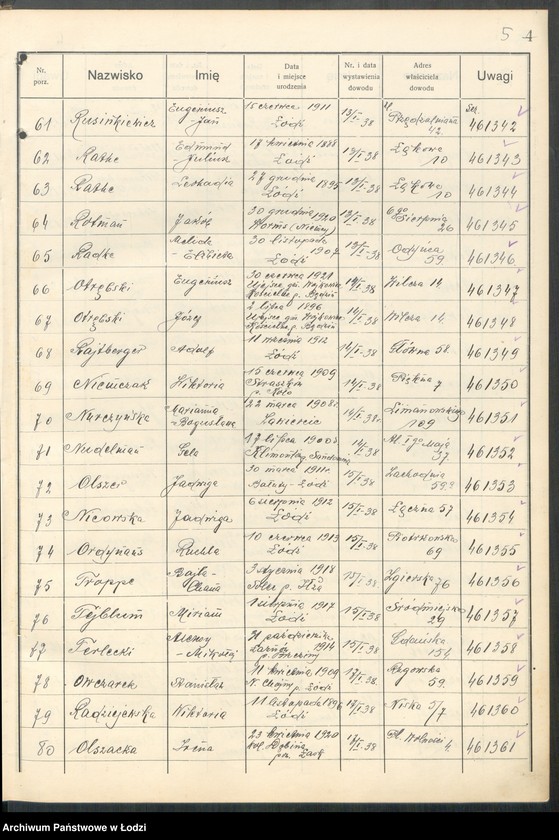 5 4
Nr. porz. Nazwisko Imię Data i miejsce urodzenia Nr. i data wystawienia dowodu Adres właściciela dowodu Uwagi
61 Rusinkiewicz Eugeniusz Jan 15 czerwca 1911 Łódź 13/I-38 Ser. 461342
62 Rathe Edmund Juliusz 17 kwietnia Łódź 13/I-38 Łąkowa 10 461343
63 Rathe Leokadia 27 grudnia 1895 Łódź 13/I-38 Łąkowa 10 461344
64 Rotman Jakób 30 grudnia 1920 Worms (Niemcy) 13/I-38 6go Sierpnia 26 461345
65 Radke 30 listopada 1907 Łódź 13/I-38 59 461346
66 Otrębski Eugeniusz 30 czerwca 1921 14/I-38 Wilcza 14 461347
67 Otrębski Józef 2 lipca 1896 14/I-38 Wilcza 14 461348
68 Rajtberger Adolf 11 września 1912 Łódź 14/I-38 Główna 58 461349
69 Niemczak Wiktoria 15 czerwca 1909 p. Koło 14/I-38 Piękna 7 461350
70 Nurczyńska Marianna Bogusława 22 marca 1908 14/I-38 Limanowskiego 109 461351
71 Nudelman Gela 17 lipca 1900 14/I-38 Al. 1go Maja 37 461352
72 Olszer Jadwiga 30 marca 1911 Bałuty-Łódź 15/I-38 Zachodnia 461353
73 Nicowska Jadwiga 6 sierpnia 1912 Łódź 15/I-38 Łączna 57 461354
74 Ordynans Ruchla 10 czerwca 1913 Łódź 15/I-38 Piotrkowska 69 461355
75 Troppe Rajla Chana 3 stycznia 1918 15/I-38 Zgierska 76 461356
76 Tyblum Miriam 1 sierpnia 1917 Łódź 15/I-38 Śródmiejska 29 461357
77 Terlecki Aleksy Mikołaj października 1914 15/I-38 Gdańska 154 461358
78 Owczarek Stanisław 11 kwietnia 1909 N. Chojny p. Łódź 17/I-38 Rzgowska 59 461359
79 Radziejewska Wiktoria 11 listopada 1896 Łódź 17/I-38 Niska 5/7 461360
80 Olszacka Irena 23 kwietnia 1920 17/I-38 Pl. Wolności 461361
Archiwum Państwowe w Łodzi